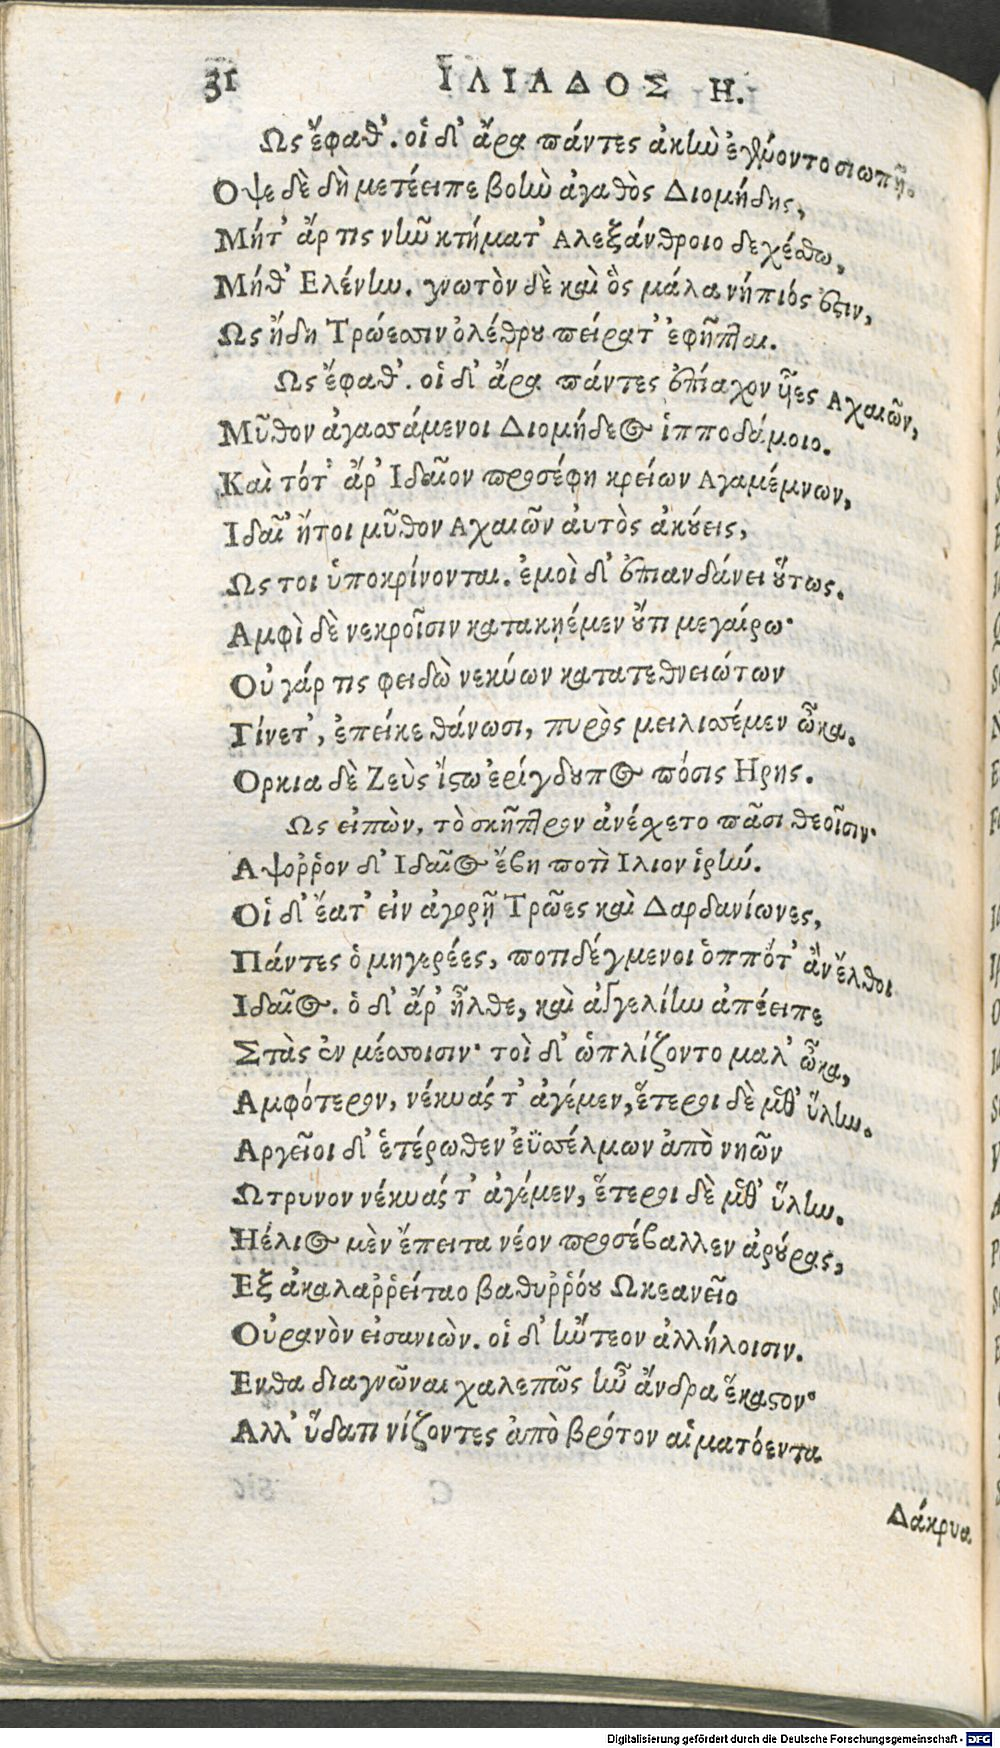 31 ΙΛΙΑΔΟΣ Η.
Ως ἔφαθ'. οἱ δ' ἄρα πάντες ἀκὴν ἐγένοντο σιωπῇ.
Οψε δὲ δὴ μετέειπε βοὴν ἀγαθὸς Διομήδης,
Μήτ' ἄρ τις νῦν κτήματ' Αλεξάνδροιο δεχέσθω,
Μήθ' Ελένην. γνωτὸν δὲ καὶ ὃς μάλα νήπιός ἐστιν,
Ως ἤδη Τρώεσσιν ὀλέθρου πείρατ' ἐφῆπται.
Ως ἔφαθ'. οἱ δ' ἄρα πάντες ἐπίαχον υἷες Αχαιῶν,
Μῦθον ἀγασσάμενοι Διομήδεος ἱπποδάμοιο.
Καὶ τότ' ἄρ' Ιδαῖον προσέφη κρείων Αγαμέμνων,
Ιδαῖ' ἤτοι μῦθον Αχαιῶν ἀυτὸς ἀκούεις,
Ως τοι ὑποκρίνονται. ἐμοὶ δ' ἐπιανδάνει οὕτως.
Αμφὶ δὲ νεκροῖσιν κατακηέμεν οὔτι μεγαίρω·
Οὐ γάρ τις φειδὼ νεκύων κατατεθνειώτων
Γίνετ', ἐπείκε θάνωσι, πυρὸς μειλισσέμεν ὦκα.
Ορκια δὲ Ζεὺς ἴστω ἐρίγδουπος πόσις Ηρης.
Ως εἰπὼν, τὸ σκῆπτρον ἀνέσχετο πᾶσι θεοῖσιν·
Αψοῤῥον δ' Ιδαῖος ἔβη ποτὶ Ιλιον ἱρήν.
Οἱ δ' ἕατ' εἰν ἀγορῇ Τρῶες καὶ Δαρδανίωνες,
Πάντες ὁμηγερέες, ποτιδέγμενοι ὁππότ' ἂν ἔλθοι
Ιδαῖος. ὁ δ' ἄρ' ἦλθε, καὶ ἀγγελίην ἀπέειπε
Στὰς ἐν μέσσοισιν· τοὶ δ' ὡπλίζοντο μαλ' ὦκα,
Αμφότερον, νέκυάς τ' ἀγέμεν, ἕτεροι δὲ μεθ' ὕλην.
Αργεῖοι δ' ἑτέρωθεν ἐϋσσέλμων ἀπὸ νηῶν
Ωτρυνον νέκυάς τ' ἀγέμεν, ἕτεροι δὲ μεθ' ὕλην.
Ηέλιος μὲν ἔπειτα νέον προσέβαλλεν ἀρούρας,
Εξ ἀκαλαῤῥείταο βαθυῤῥόου Ωκεανεῖο
Οὐρανὸν εἰσανιών. οἱ δ' ἤντεον ἀλλήλοισιν.
Ενθα διαγνῶναι χαλεπῶς ἦν ἄνδρα ἕκαστον·
Αλλ' ὕδατι νίζοντες ἀπὸ βρότον αἱματόεντα
Δάκρυα
Digitalisierung gefördert durch die Deutsche Forschungsgemeinschaft - DFG